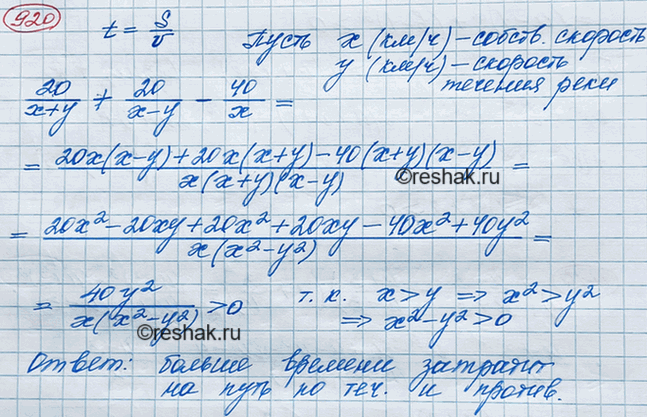 920
t = S/v
Пусть x (км/ч) – собств. скорость
y (км/ч) – скорость
течения реки
20/(x+y) + 20/(x−y) − 40/x =
= (20x(x−y)+20x(x+y)−40(x+y)(x−y))/(x(x+y)(x−y)) =
©reshak.ru
= (20x²−20xy+20x²+20xy−40x²+40y²)/(x(x²−y²)) =
= 40y²/(x(x²−y²)) >0 т.к. x>y ⇒ x²>y²
⇒ x²−y²>0
©reshak.ru
Ответ: больше времени затратит
на путь по теч. и против.